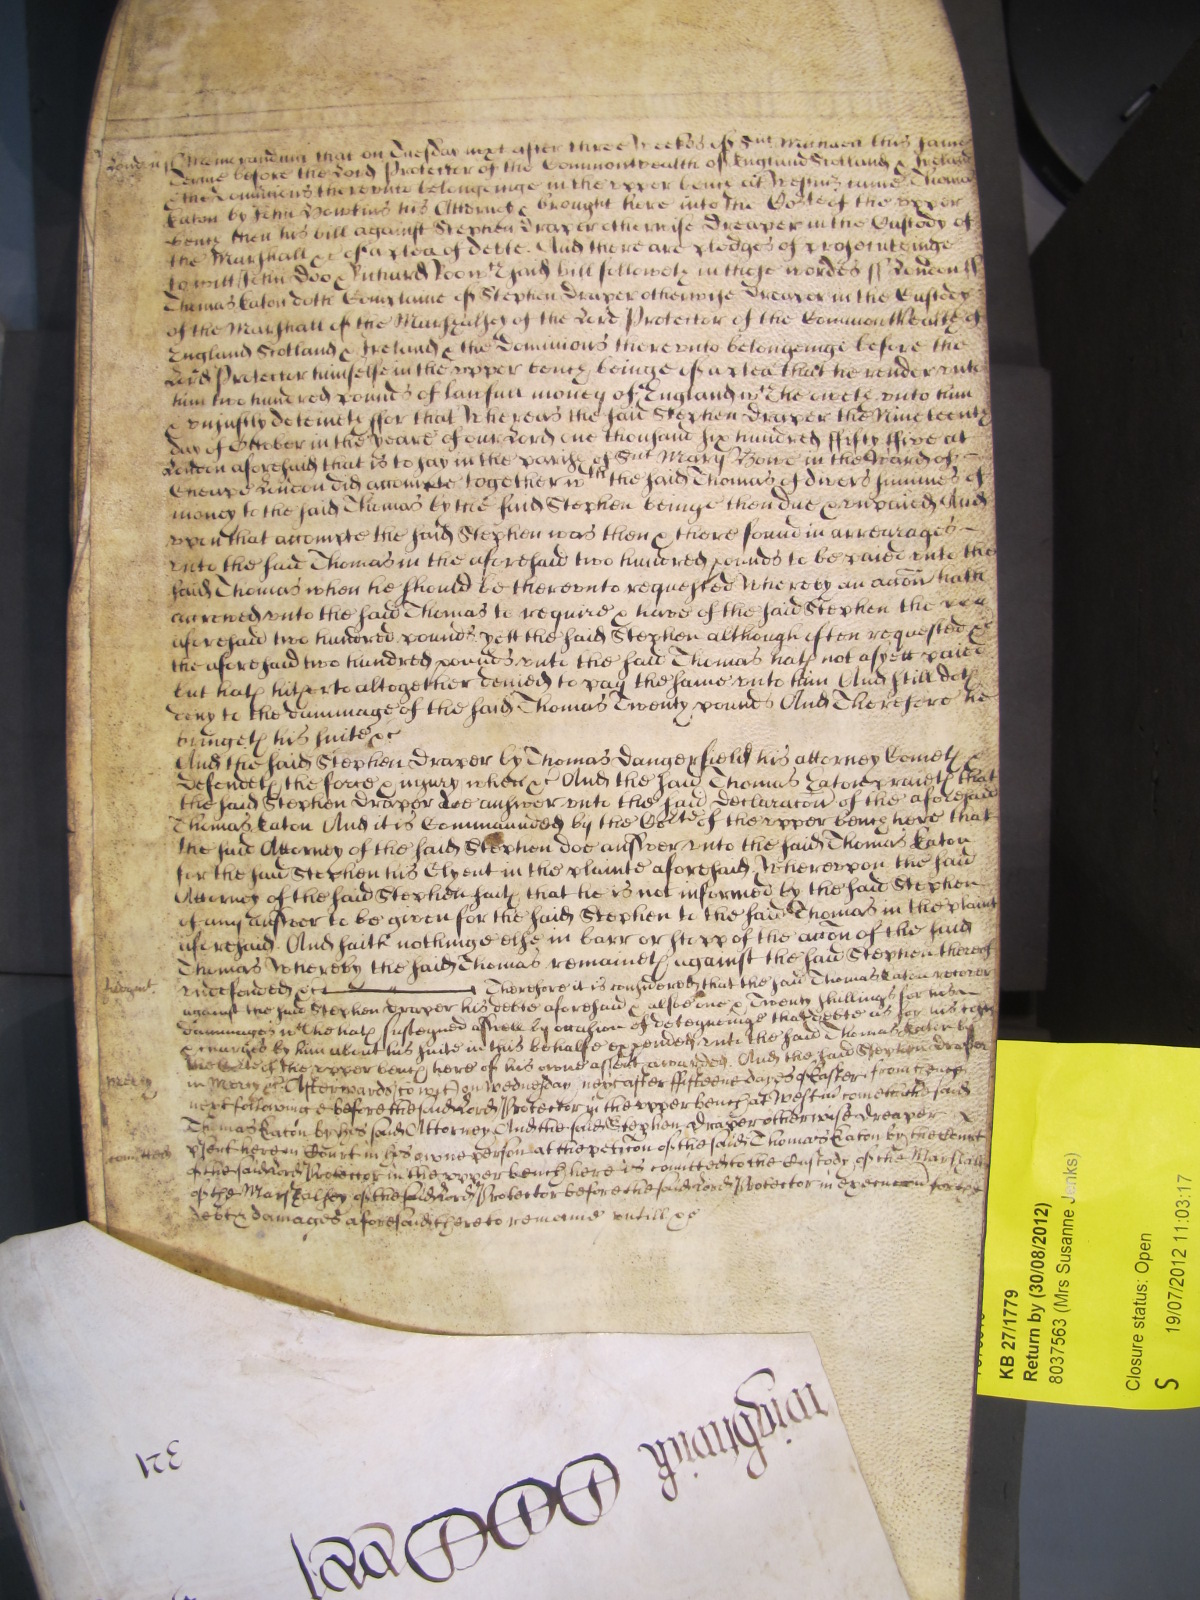 London ss Memorandum that on Tuesday next after three Weekes of Snt Michaell this same
Terme before the Lord Protector of the Commonwealth of England Scotland & Ireland
& the Dominions thereunto belonginge in the upper bench at Westmr came Thomas
Eaton by John Hawkins his Attorney & brought here into the Corte of the upper
bench then his bill against Stephen Draper otherwise Dreaper in the Custody of
the Marshall &c of a plea of debte. And there are pledges of prosecuteinge
to witt John Doo & Richard Roo wch said bill followeth in these wordes ss London ss
Thomas Eaton doth Complaine of Stephen Draper otherwise Dreaper in the Custody
of the Marshall of the Marshalsey of the Lord Protector of the Common Wealth of
England Scotland & Ireland & the Dominions thereunto belongeinge before the
Lord Protector himselfe in the upper bench beinge of a plea that he render unto
him two hundred pounds of lawfull money of England wch he oweth unto him
& unjustly deteineth ffor that Whereas the said Stephen Draper the Nineteenth
day of October in the yeare of our Lord one thousand six hundred ffifty ffive at
London aforesaid that is to say in the parish of Snt Mary Bowe in the Ward of
Cheape London did accompte together wth the said Thomas of divers summes of
money to the said Thomas by the said Stephen beinge then due & unpaied And
upon that accompte the said Stephen was then & there found in arrearages
unto the said Thomas in the aforesaid two hundred pounds to be paied unto the
said Thomas when he should be thereunto requested Whereby an accon hath
accrewed unto the said Thomas to require & have of the said Stephen the
aforesaid two hundred pounds yett the said Stephen although often requested &c
the aforesaid two hundred pounds unto the said Thomas hath not as yett paied
but hath hitherto altogether denied to pay the same unto him And still doth
deny to the dammage of the said Thomas Twenty pounds And Therefore he
bringeth his suite &c
And the said Stephen Draper by Thomas Dangerfield his attorney Cometh &
defendeth the force & injury when &c And the said Thomas Eaton prayeth that
the said Stephen Draper doe answer unto the said declaracon of the aforesaid
Thomas Eaton And it is Commanded by the Corte of the upper bench here that
the said Attorney of the said Stephen doe answer unto the said Thomas Eaton
for the said Stephen his Clyent in the plainte aforesaid Whereupon the said
Attorney of the said Stephen saith that he is not informed by the said Stephen
of any answer to be given for the said Stephen to the said Thomas in the plaint
aforesaid. And saith nothinge else in barr or stopp of the accon of the said
Thomas Whereby the said Thomas remaineth against the said Stephen thereof
Judgmt undefended &c Therefore it is considered that the said Thomas Eaton recover
against the said Stephen Draper his debte aforesaid & alsoe one & Twenty shillings for his
dammages wch he hath susteyned aswell by occasion of deteyneinge that debte as for his costes
& charges by him about his suite in this behalfe expended unto the said Thomas Eaton by
the Corte of the upper bench here of his owne assent awarded. And the said Stephen Draper
mercy in Mercy &c Afterwards to witt on Wednesday next after ffifteene dayes of Easter from thence
next followinge before the said Lord Protector in the upper bench at Westmr cometh the said
Thomas Eaton by his said Attorney And the said Stephen Draper otherwise Dreaper
comitted psent here in Court in his owne person at the peticon of the said Thomas Eaton by the Court
of the said Lord Protector in the upper bench here is comitted to the Custody of the Marshall
of the Marshalsey of the said Lord Protector before the said Lord Protector in execucon for the
debt & damages aforesaid there to remaine untill &c
wightwick
321
KB 27/1779
Return by (30/08/2012)
8037563 (Mrs Susanne Jenks)
Closure status: Open
S 19/07/2012 11:03:17